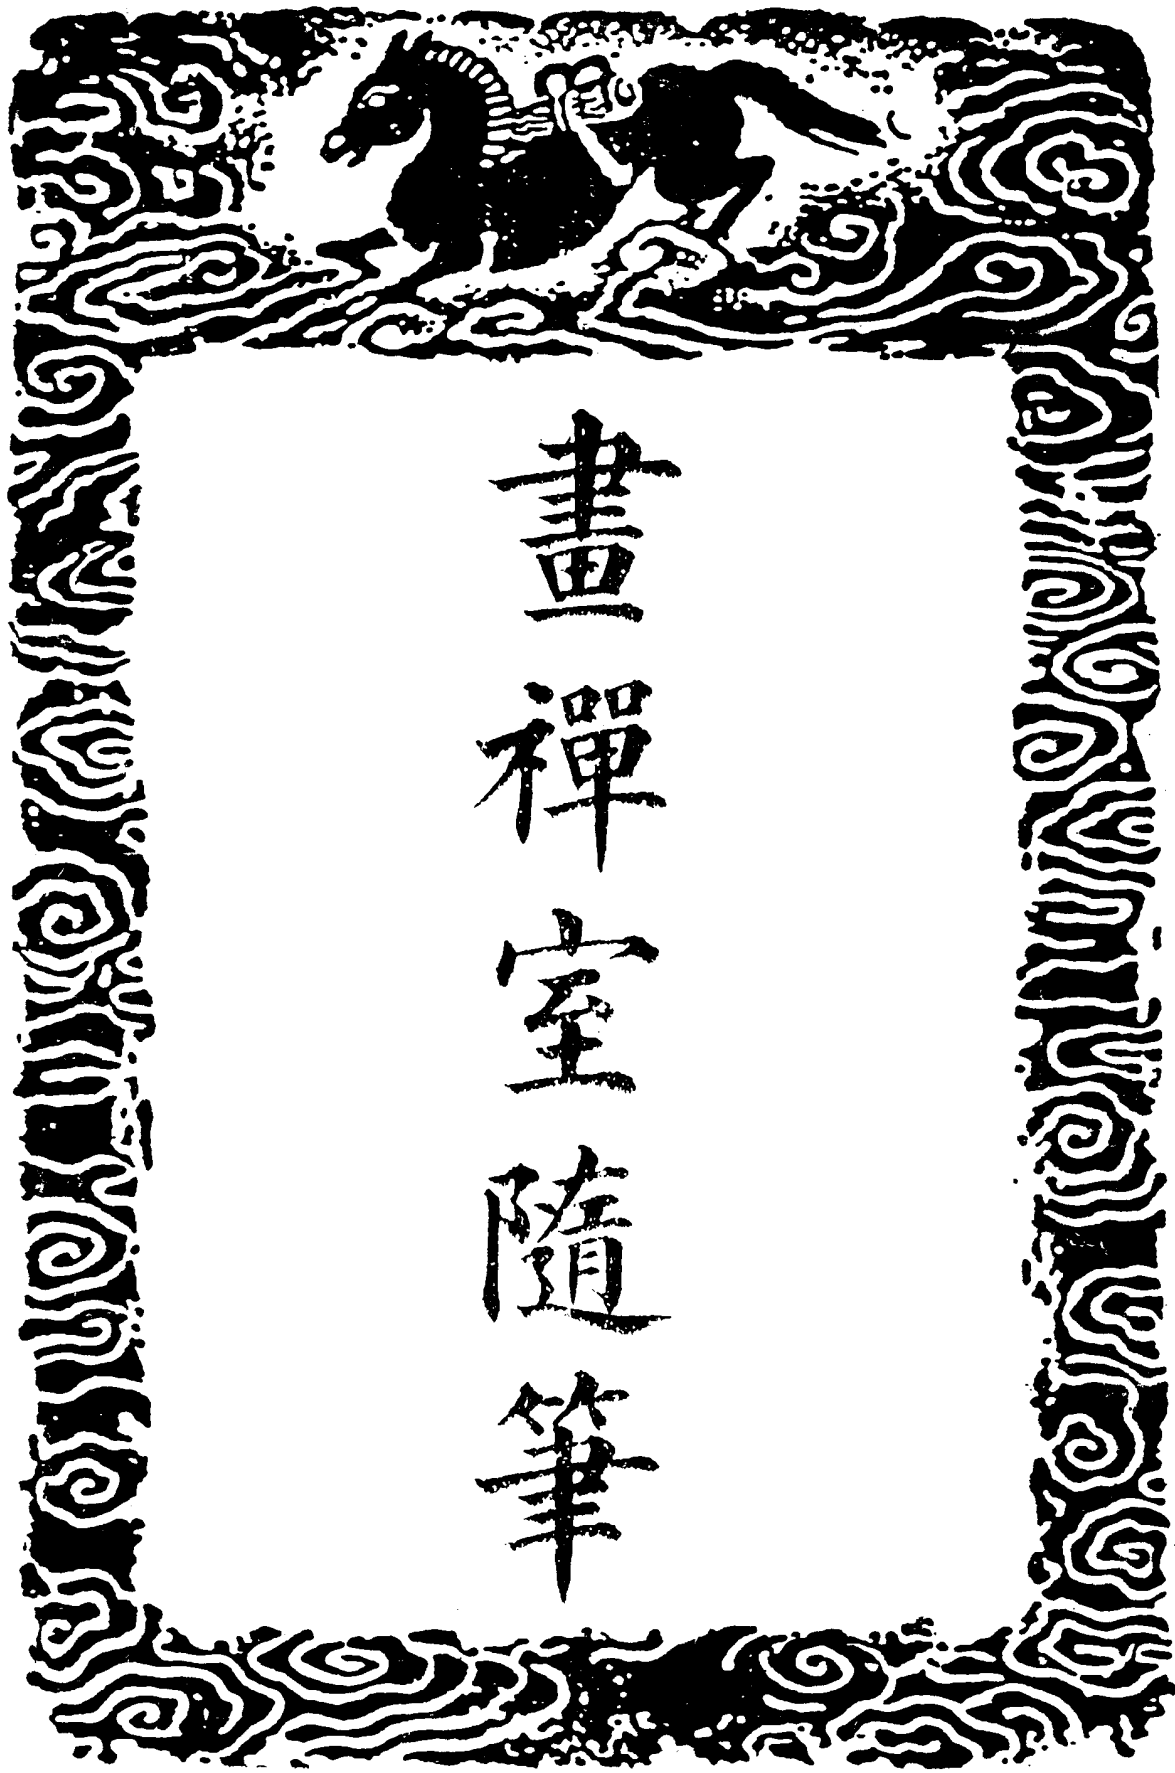 畫禪室隨筆